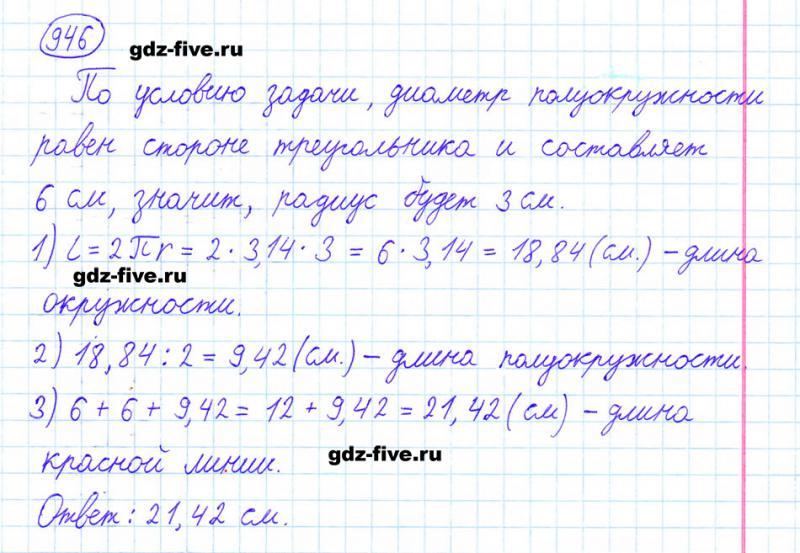 946
gdz-five.ru
По условию задачи, диаметр полуокружности
равен стороне треугольника и составляет
6 см, значит, радиус будет 3 см.
1) C = 2πr = 2 · 3,14 · 3 = 6 · 3,14 = 18,84 (см.) – длина
gdz-five.ru
окружности.
2) 18,84 : 2 = 9,42 (см.) – длина полуокружности.
3) 6 + 6 + 9,42 = 12 + 9,42 = 21,42 (см) – длина
красной линии.
gdz-five.ru
Ответ: 21,42 см.